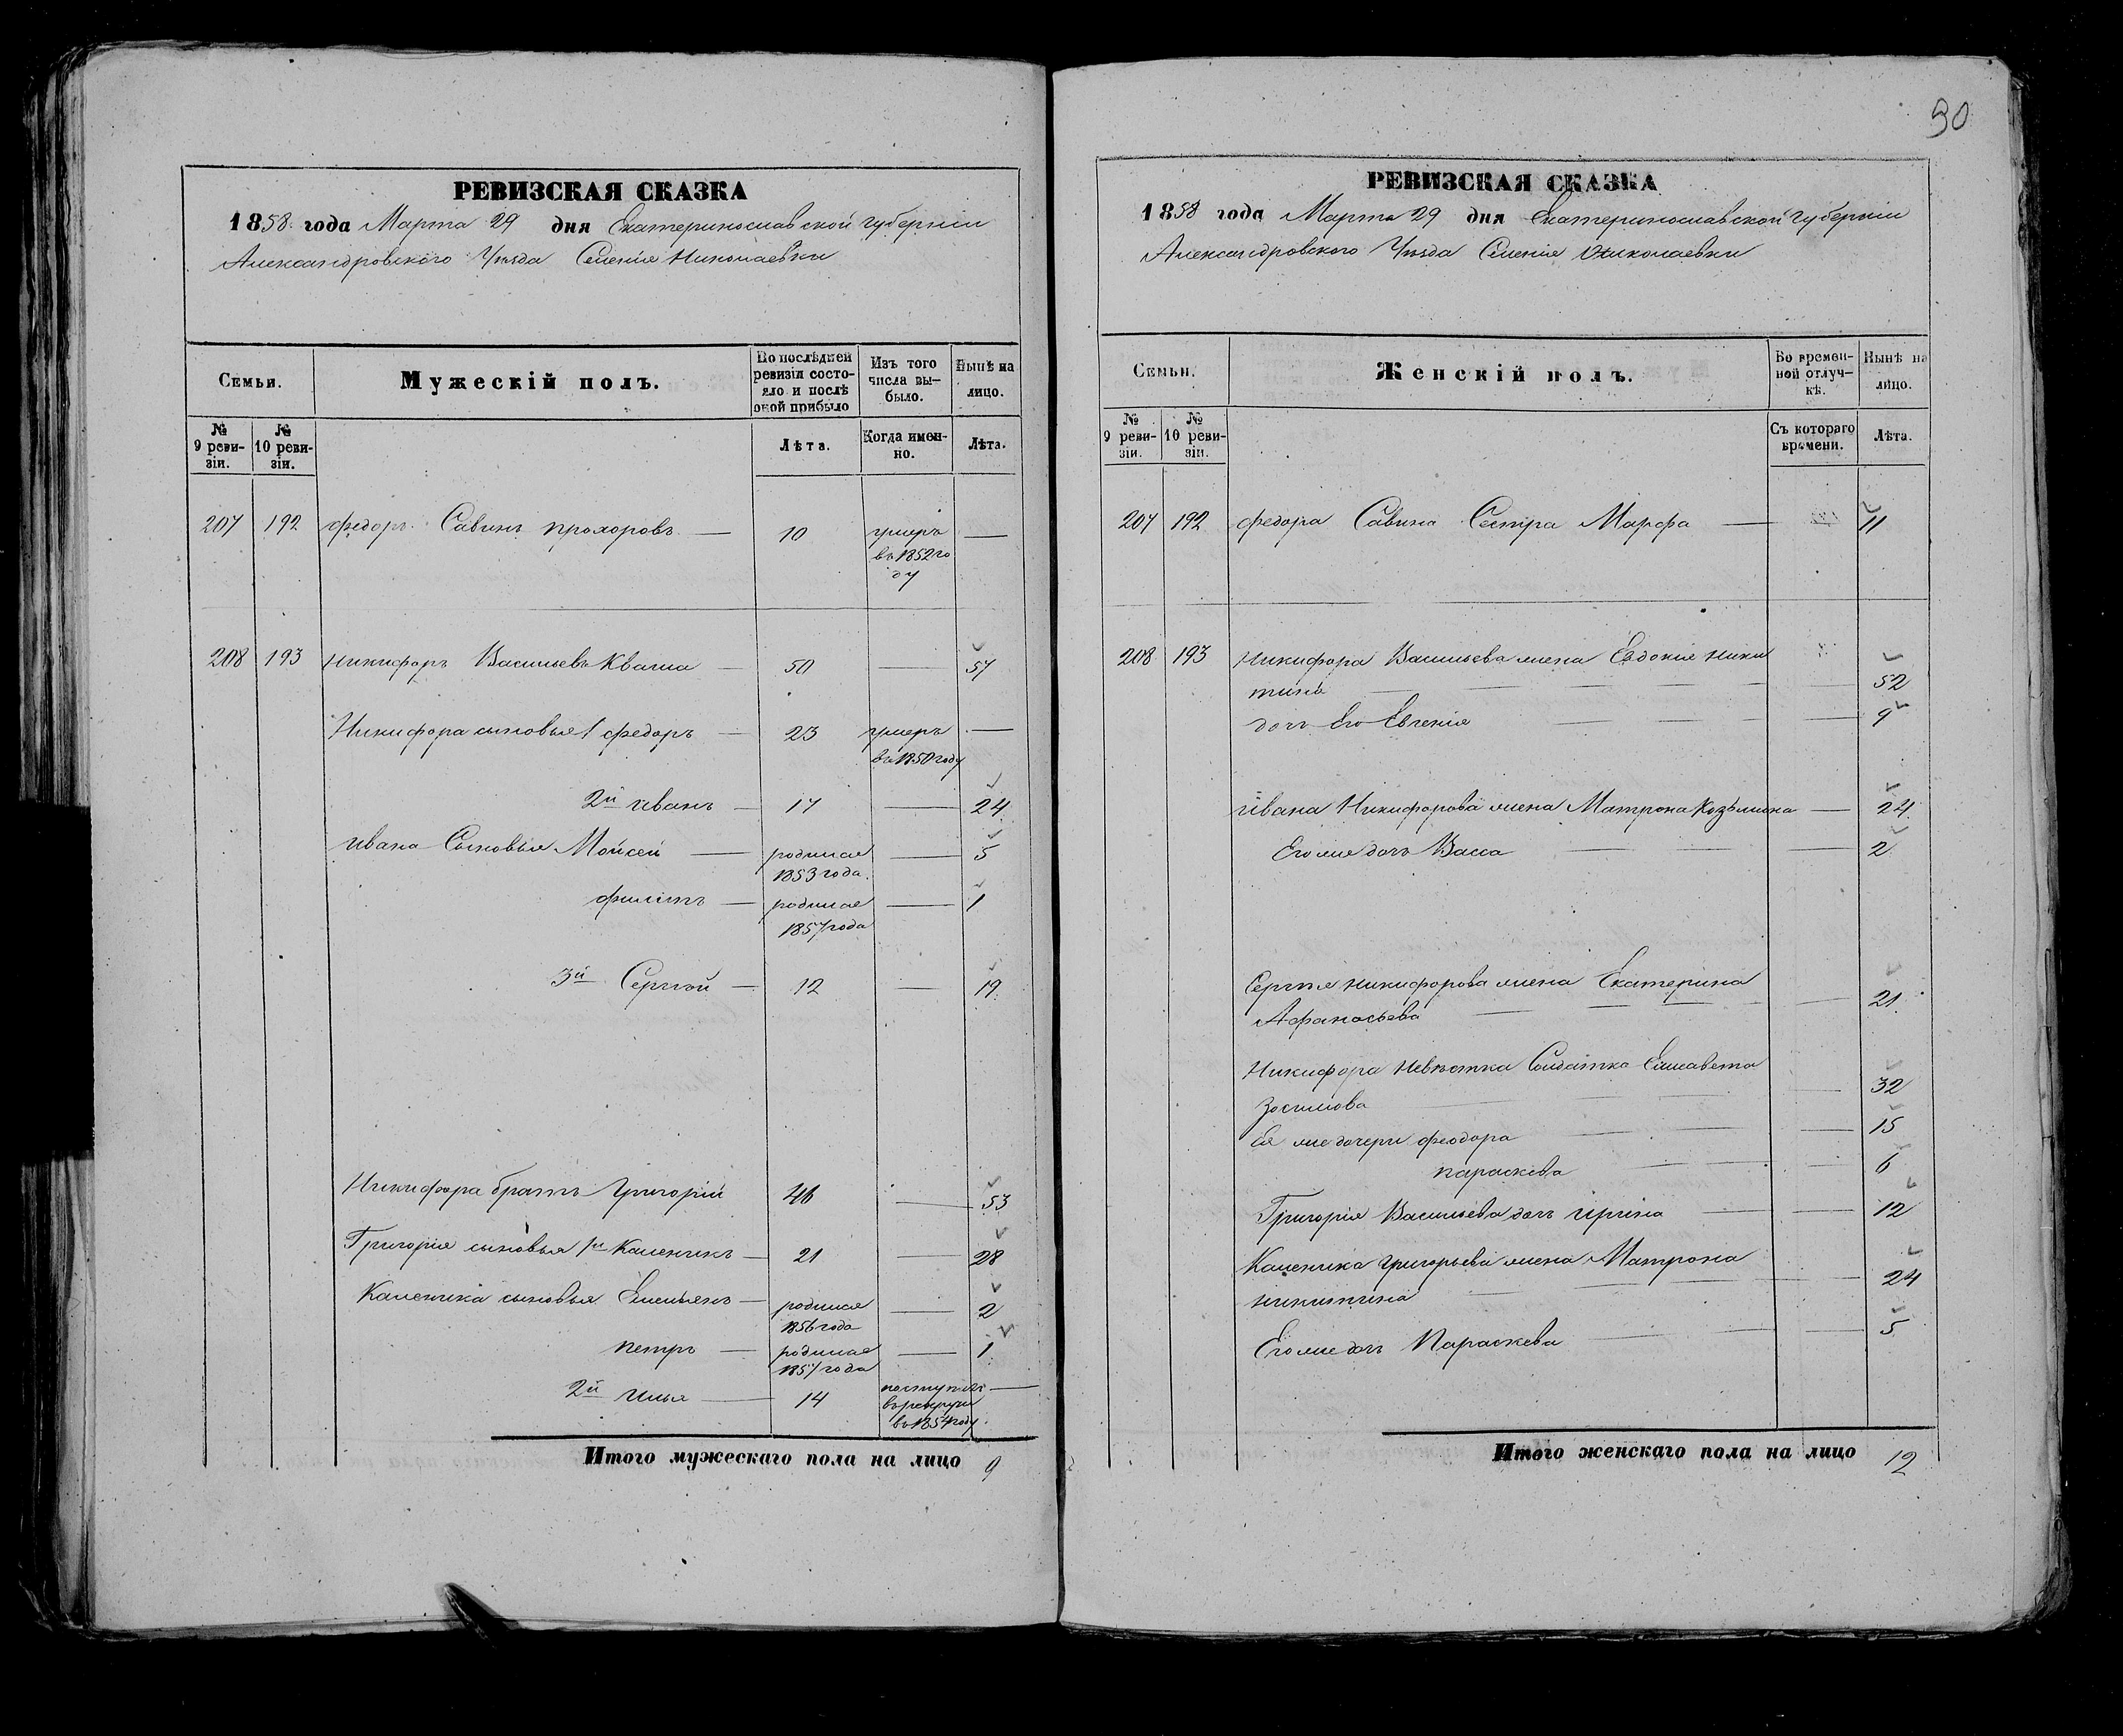 РЕВИЗСКАЯ СКАЗКА
1858 года Марта 29 дня Екатеринославской губернии
Александровского Уѣзда Селенія Николаевки
Семьи.
Мужескій полъ.
По послѣдней ревизіи состояло и послѣ оной прибыло
Изъ того числа выбыло.
Нынѣ на лицо.
№ 9 ревизіи.
№ 10 ревизіи.
Лѣта.
Когда именно.
Лѣта.
207 192 Федоръ Савинъ Прохоровъ — 10 умеръ —
въ 1852 го
ду
208 193 Никифоръ Васильевъ Кваша — 50 — 57
Никифора сыновья 1 Федоръ — 23 умеръ —
въ 1850 году
2й Иванъ — 17 — 24
Ивана Сыновья Мойсей — родился — 5
1853 года.
Филипъ — родился — 1
1857 года
3й Сергѣй — 12 — 19
Никифора братъ Григорій 46 — 53
Григорія сыновья 1й Каленикъ — 21 — 28
Каленика сыновья Емельянъ — родился — 2
1856 года
Петръ — родился — 1
1857 года
2й Илья — 14 поступилъ —
въ рекруты
въ 1854 году
Итого мужескаго пола на лицо 9
30
РЕВИЗСКАЯ СКАЗКА
1858 года Марта 29 дня Екатеринославской Губерніи
Александровского Уѣзда Селенія Николаевки
Семьи.
Женскій полъ.
Во временной отлучкѣ.
Нынѣ на лицо.
№ 9 ревизіи.
№ 10 ревизіи.
Съ котораго времени.
Лѣта.
207 192 Федора Савина Сестра Марфа — 11
208 193 Никифора Васильева жена Евдокія Ники
тина — 52
дочь Его Евгенія — 9
Ивана Никифорова жена Матрона Козьмина — 24
Его же дочь Васса — 2
Сергѣя Никифорова жена Екатерина
Афанасьева — 21
Никифора Невѣстка Солдатка Елисавета
Зосимова — 32
Ея же дочери Феодора — 15
Параскева — 6
Григорія Васильева дочь Ирина — 12
Каленика Григорьева жена Матрона
Никитина — 24
Его же дочь Параскева — 5
Итого женскаго пола на лицо 12